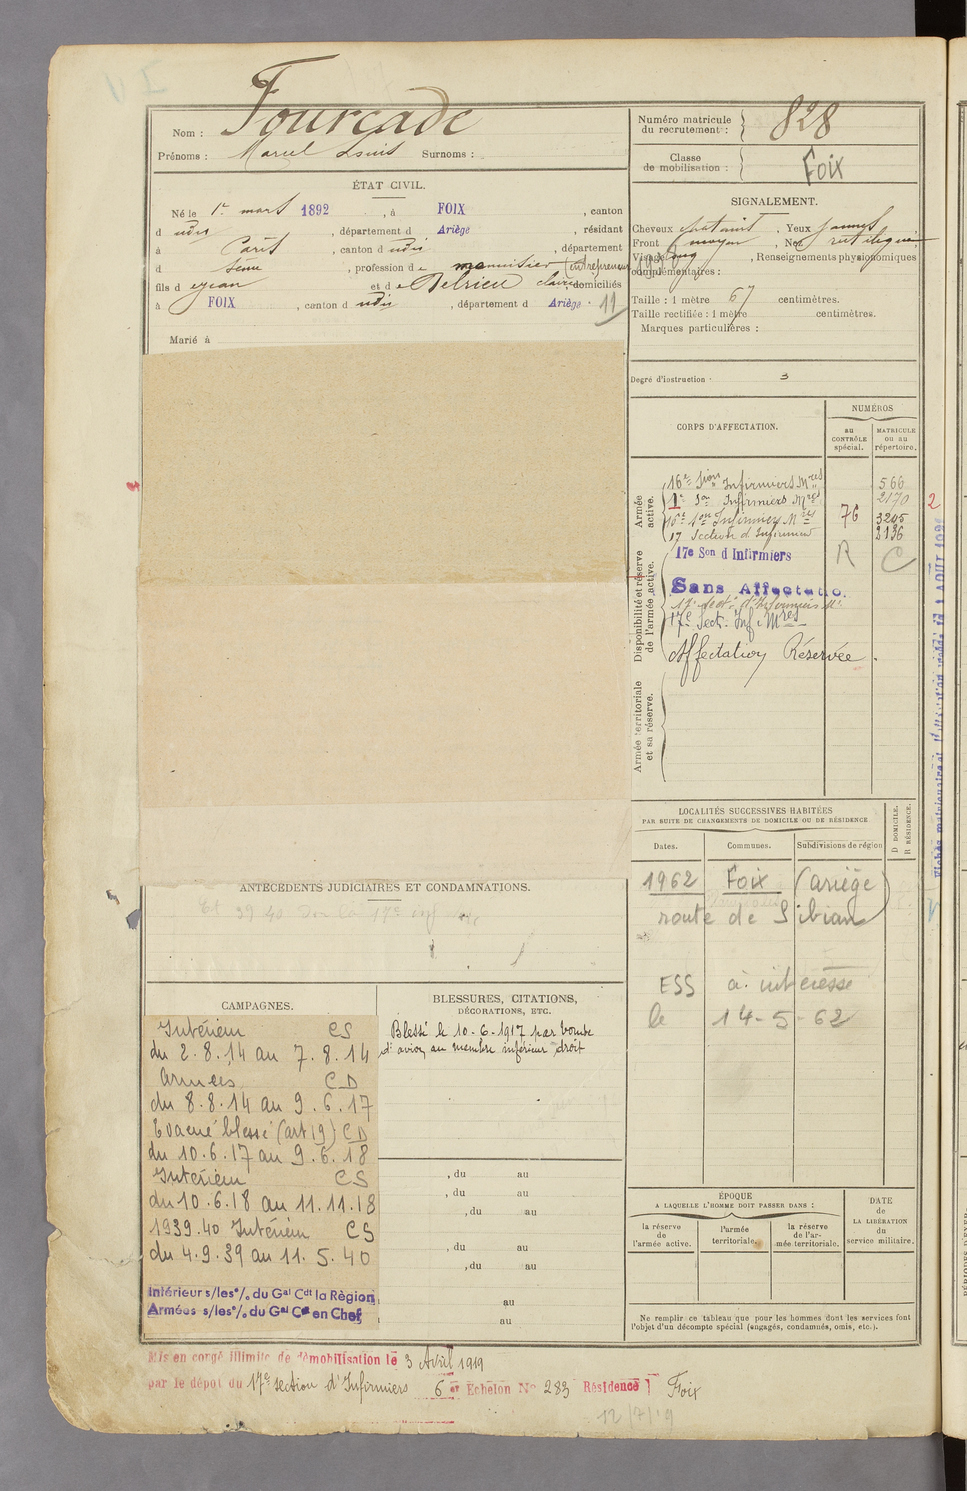 Nom : Fourcade
Prénoms : Marcel Louis Surnoms :
Numéro matricule
du recrutement : 828
Classe
de mobilisation : Foix
ÉTAT CIVIL.
Né le 1er mars 1892, à FOIX, canton
d udit, département d Ariège, résidant
à Paris, canton d udit, département
d Seine, profession de menuisier (entrepreneur
fils d e Jean et de Delrieu Claire domiciliés
à FOIX, canton d udit, département d Ariège. 11
Marié à
SIGNALEMENT.
Cheveux chatains, Yeux jaunes
Front moyen, Nez rectiligne
Visage long, Renseignements physionomiques
complémentaires :
Taille : 1 mètre 67 centimètres.
Taille rectifiée : 1 mètre centimètres.
Marques particulières :
Degré d'instruction : 3
CORPS D'AFFECTATION.
NUMÉROS
au
CONTRÔLE
spécial.
MATRICULE
ou au
répertoire.
Armée
active.
16e Son Infirmiers Mres 566
1e Son Infirmiers Mres 2170 2
16e Son Infirmiers Mres 76 3245
17 Section d'Infirmiers 2136
Disponibilité et réserve
de l'armée active.
17e Son d Infirmiers R C
Sans Affectatio
17e Sect. d'Infirmiers Mres
17e Sect. Inf. Mres
Affectation Réservée.
Armée territoriale
et sa réserve.
LOCALITÉS SUCCESSIVES HABITÉES
PAR SUITE DE CHANGEMENTS DE DOMICILE OU DE RÉSIDENCE
D DOMICILE.
R RÉSIDENCE.
Dates. Communes. Subdivisions de région
1962 Foix (Ariège)
route de Sibian
ESS à intéressé
le 14-5-62
ANTÉCÉDENTS JUDICIAIRES ET CONDAMNATIONS.
CAMPAGNES.
Intérieur CS
du 2.8.14 au 7.8.14
Armées CD
du 8.8.14 au 9.6.17
Evacué blessé (art 19) CD
du 10.6.17 au 9.6.18
Intérieur CS
du 10.6.18 au 11.11.18
1939.40 Intérieur CS
du 4.9.39 au 11.5.40
Intérieur s/les°/. du Gal Cdt la Région
Armées s/les°/. du Gal Ct en Chef
BLESSURES, CITATIONS,
DÉCORATIONS, ETC.
Blessé le 10-6-1917 par bombe
d'avion au membre inférieur droit
, du au
, du au
, du au
, du au
, du au
au
au
ÉPOQUE
A LAQUELLE L'HOMME DOIT PASSER DANS :
la réserve
de
l'armée active.
l'armée
territoriale.
la réserve
de l'ar-
mée territoriale.
DATE
de
LA LIBÉRATION
du
service militaire.
Ne remplir ce tableau que pour les hommes dont les services font
l'objet d'un décompte spécial (engagés, condamnés, omis, etc.).
Mis en congé illimité de démobilisation le 3 Avril 1919
par le dépôt du 17e section d'Infirmiers 6 er Echelon No 283 Résidence Foix
12/7/19